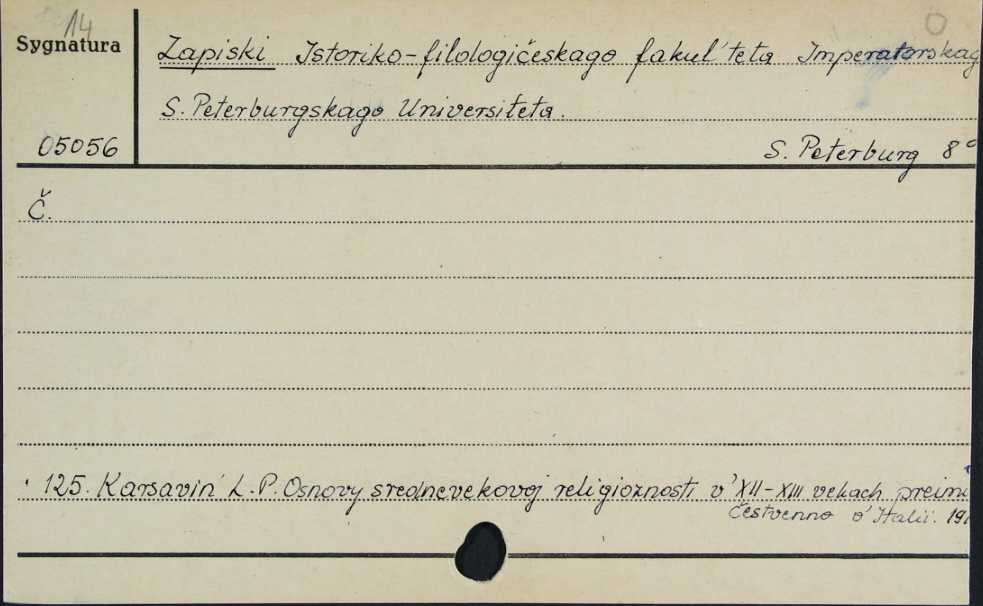 14
Sygnatura
Zapiski Istoriko-filologičeskago fakul'teta Imperatorskag
S. Peterburgskago Universiteta.
05056
S. Peterburg 8°
Č.
125. Karsavin' L. P. Osnovy srednevekovoj religioznosti v' XII-XIII vekach preimu
čestvenno v' Italii. 191